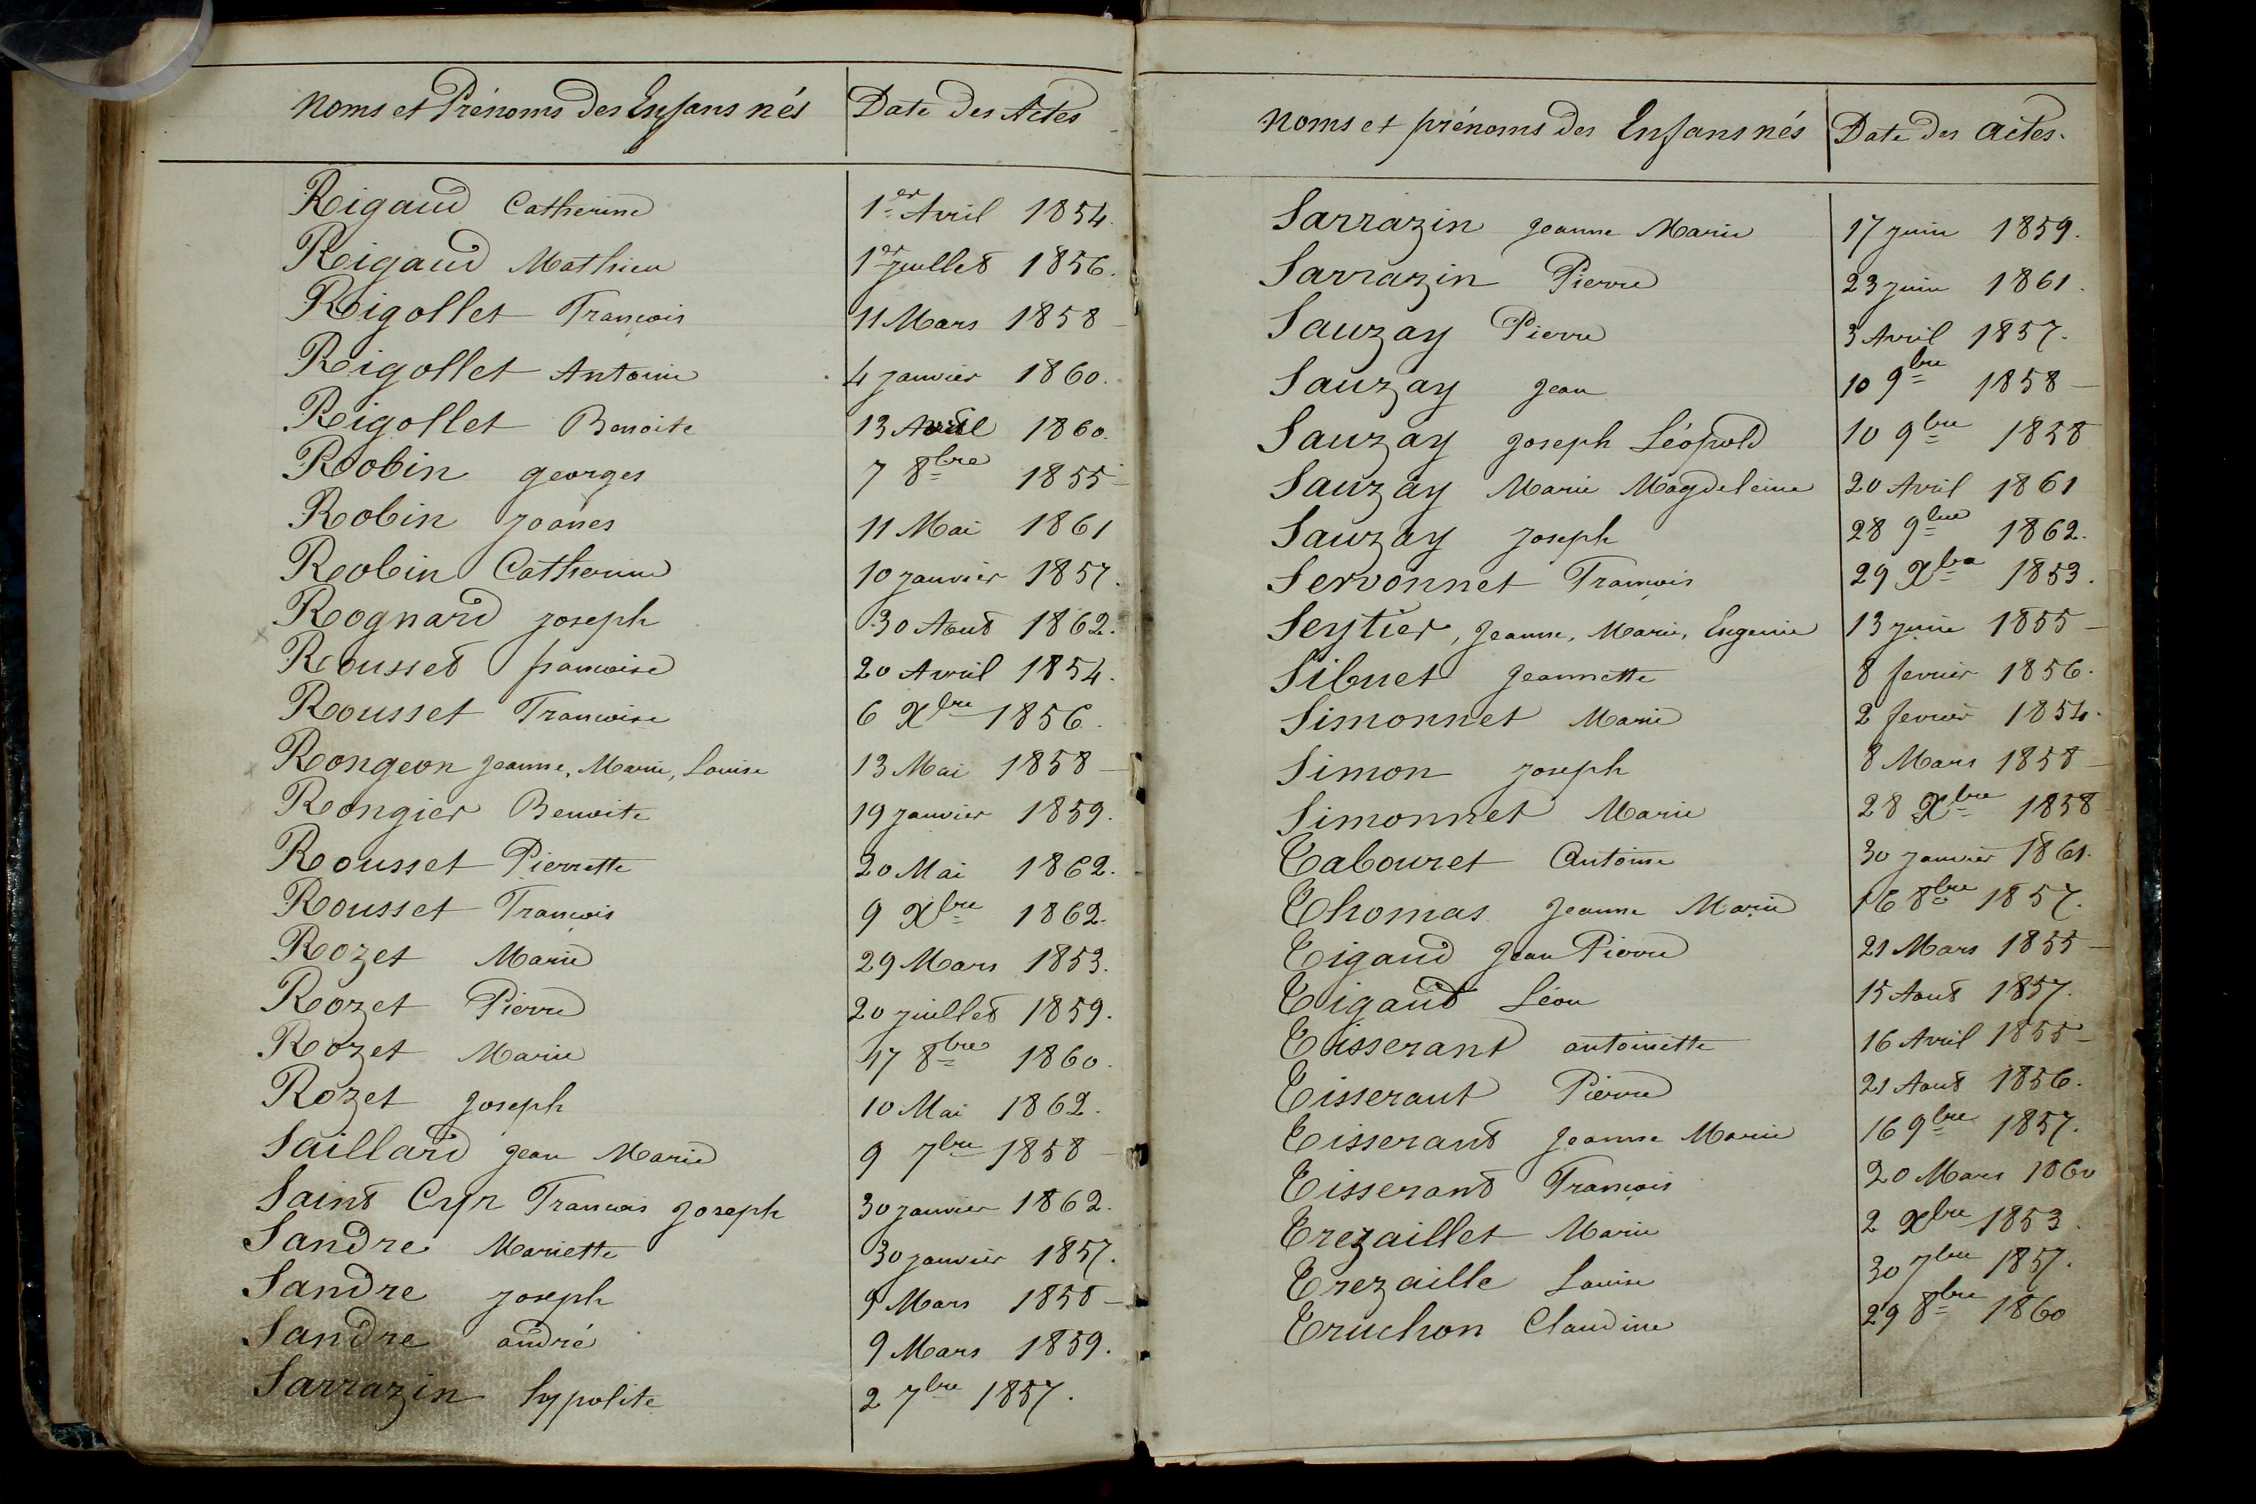 Noms et Prénoms des Enfans nés Date des Actes
Rigaud Catherine 1er Avril 1854.
Rigaud Mathieu 1er juillet 1856.
Rigollet François 11 Mars 1858 –
Rigollet Antoine 4 janvier 1860.
Rigollet Benoite 13 Avril 1860.
Robin georges 7 8bre 1855 –
Robin joanes 11 Mai 1861
Robin Catherine 10 janvier 1857.
Rognard joseph 30 Aout 1862.
Rousset francoise 20 Avril 1854.
Rousset Francoise 6 Xbre 1856.
Rongeon Jeanne, Marie, Louise 13 Mai 1858 –
Rongier Benoite 19 janvier 1859.
Rousset Pierrette 20 Mai 1862.
Rousset François 9 Xbre 1862.
Rozet Marie 29 Mars 1853.
Rozet Pierre 20 juillet 1859.
Rozet Marie 17 8bre 1860.
Rozet Joseph 10 Mai 1862.
Saillard Jean Marie 9 7bre 1858 –
Saint Cyr Francois Joseph 30 janvier 1862.
Sandre Mariette 30 janvier 1857.
Sandre joseph 9 Mars 1858 –
Sandre andré 9 Mars 1859.
Sarrazin hypolite 2 7bre 1857.
Noms et prénoms des Enfans nés Date des actes.
Sarrazin Jeanne Marie 17 juin 1859.
Sarrazin Pierre 23 juin 1861.
Sauzay Pierre 3 Avril 1857.
Sauzay Jean 10 9bre 1858 –
Sauzay Joseph Léopold 10 9bre 1858
Sauzay Marie Magdeleine 20 Avril 1861
Sauzay Joseph 28 9bre 1862.
Servonnet François 29 Xbre 1853.
Seytier, Jeanne, Marie, Eugenie 13 juin 1855 –
Sibuet Jeannette 8 fevrier 1856.
Simonnet Marie 2 fevrier 1854.
Simon joseph 8 Mars 1858 –
Simonnet Marie 28 Xbre 1858
Tabouret Antoine 30 janvier 1861.
Thomas Jeanne Marie 16 8bre 1857.
Tigaud Jean Pierre 21 Mars 1855 –
Tigaud Léon 15 Aout 1857.
Tisserant antoinette 16 Avril 1855 –
Tisserant Pierre 21 Aout 1856.
Tisserant Jeanne Marie 16 9bre 1857.
Tisserant François 20 Mars 1860
Trezaillet Marie 2 Xbre 1853.
Trezaille Louise 30 7bre 1857.
Truchon Claudine 29 8bre 1860